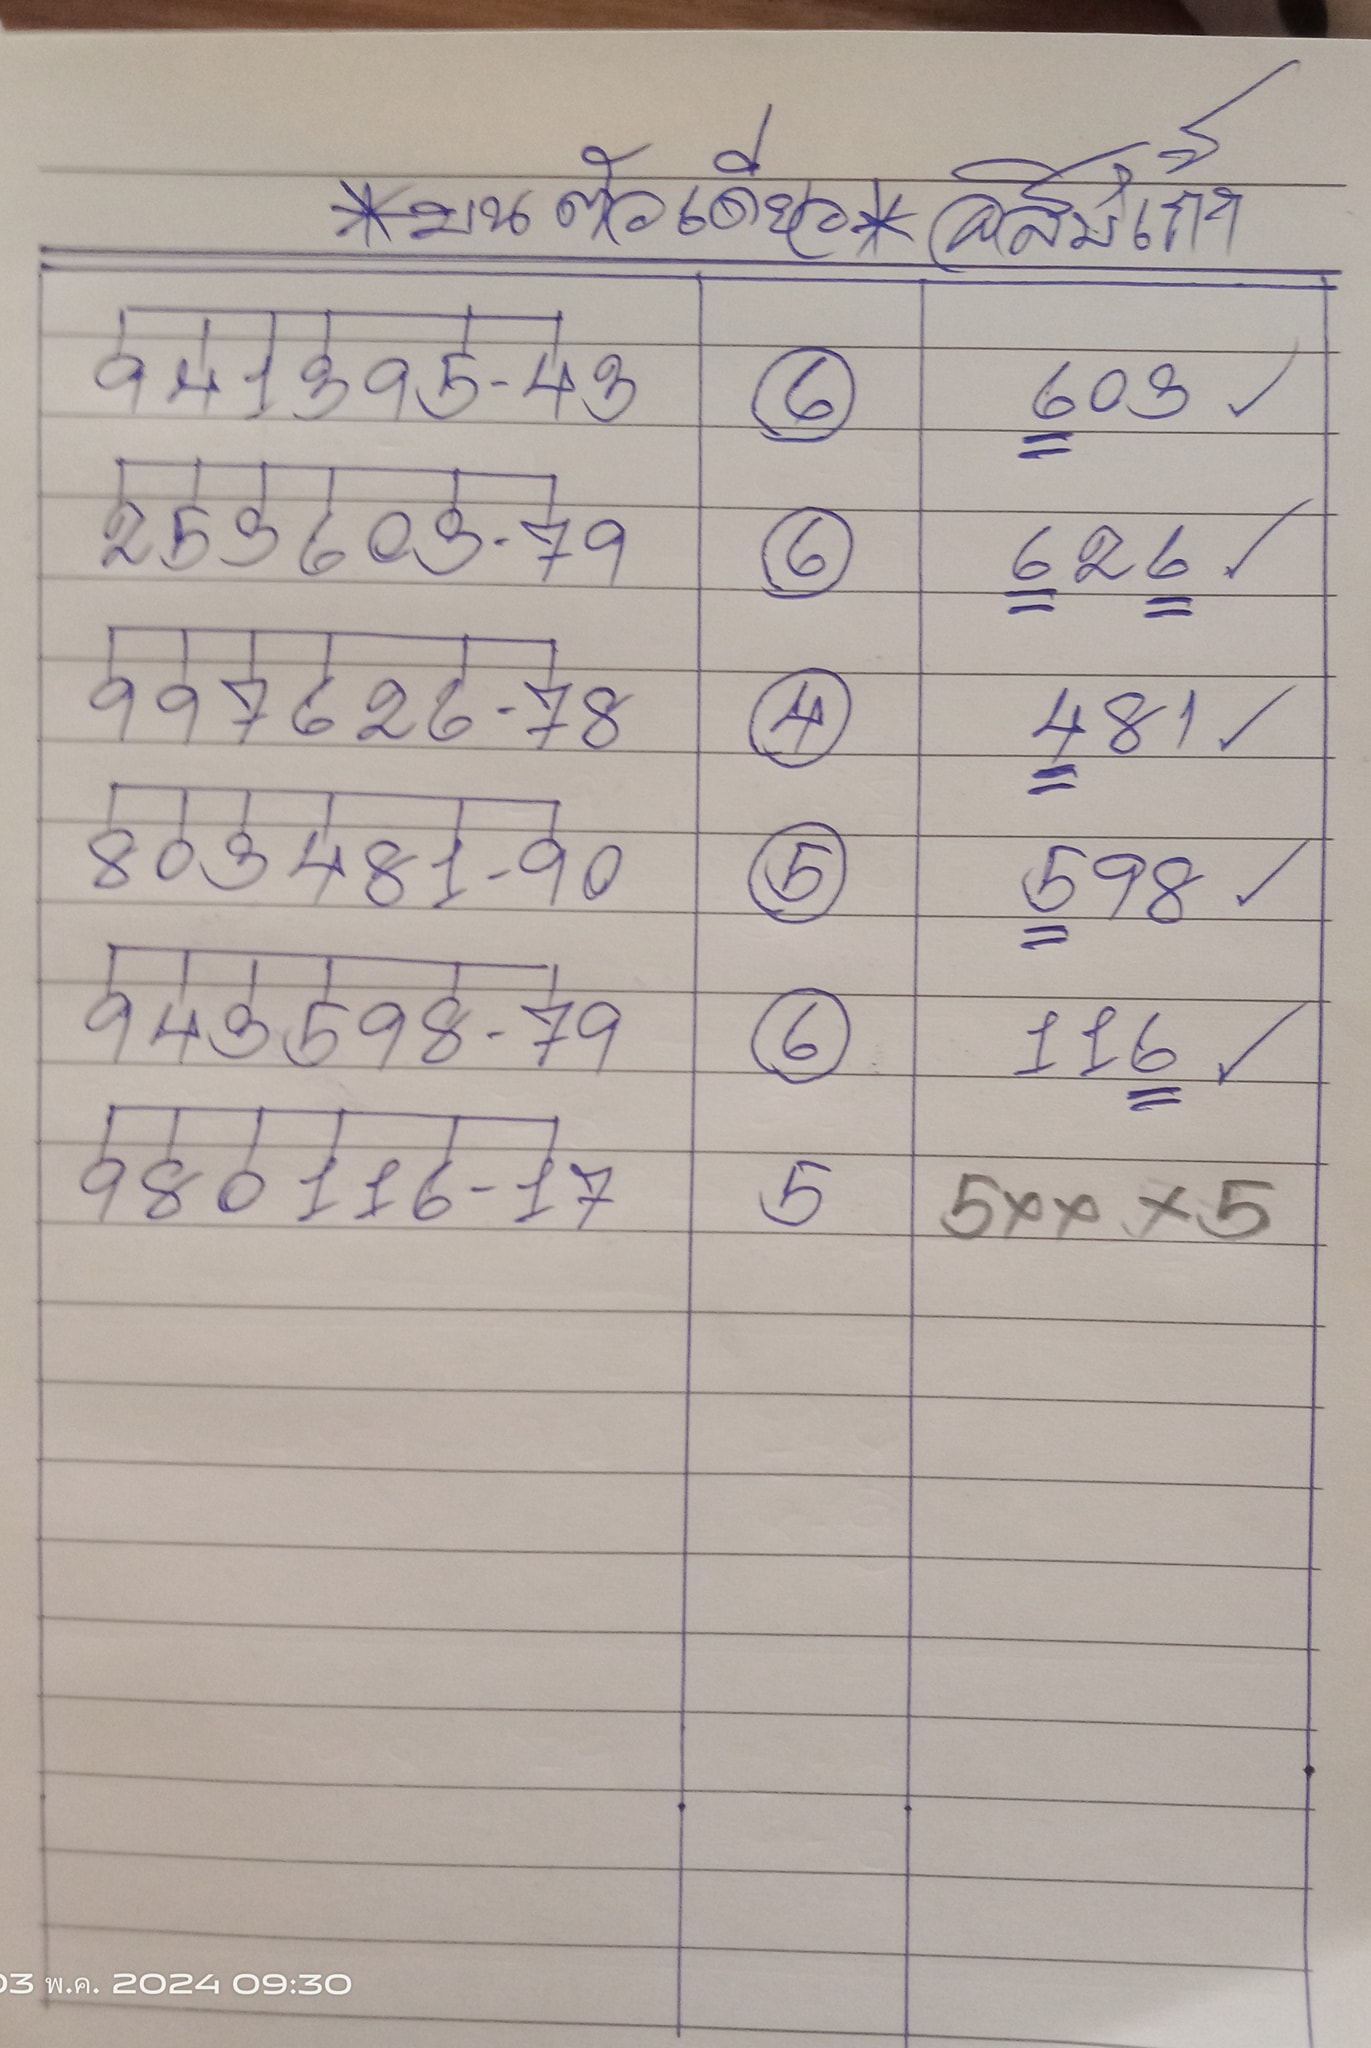 *บน ตัวเดียว*
941395-43 6 603 ✓
253603-79 6 626 ✓
997626-78 4 481 ✓
803481-90 5 598 ✓
943598-79 6 116 ✓
980116-17 5 5×× ×5
03 พ.ค. 2024 09:30